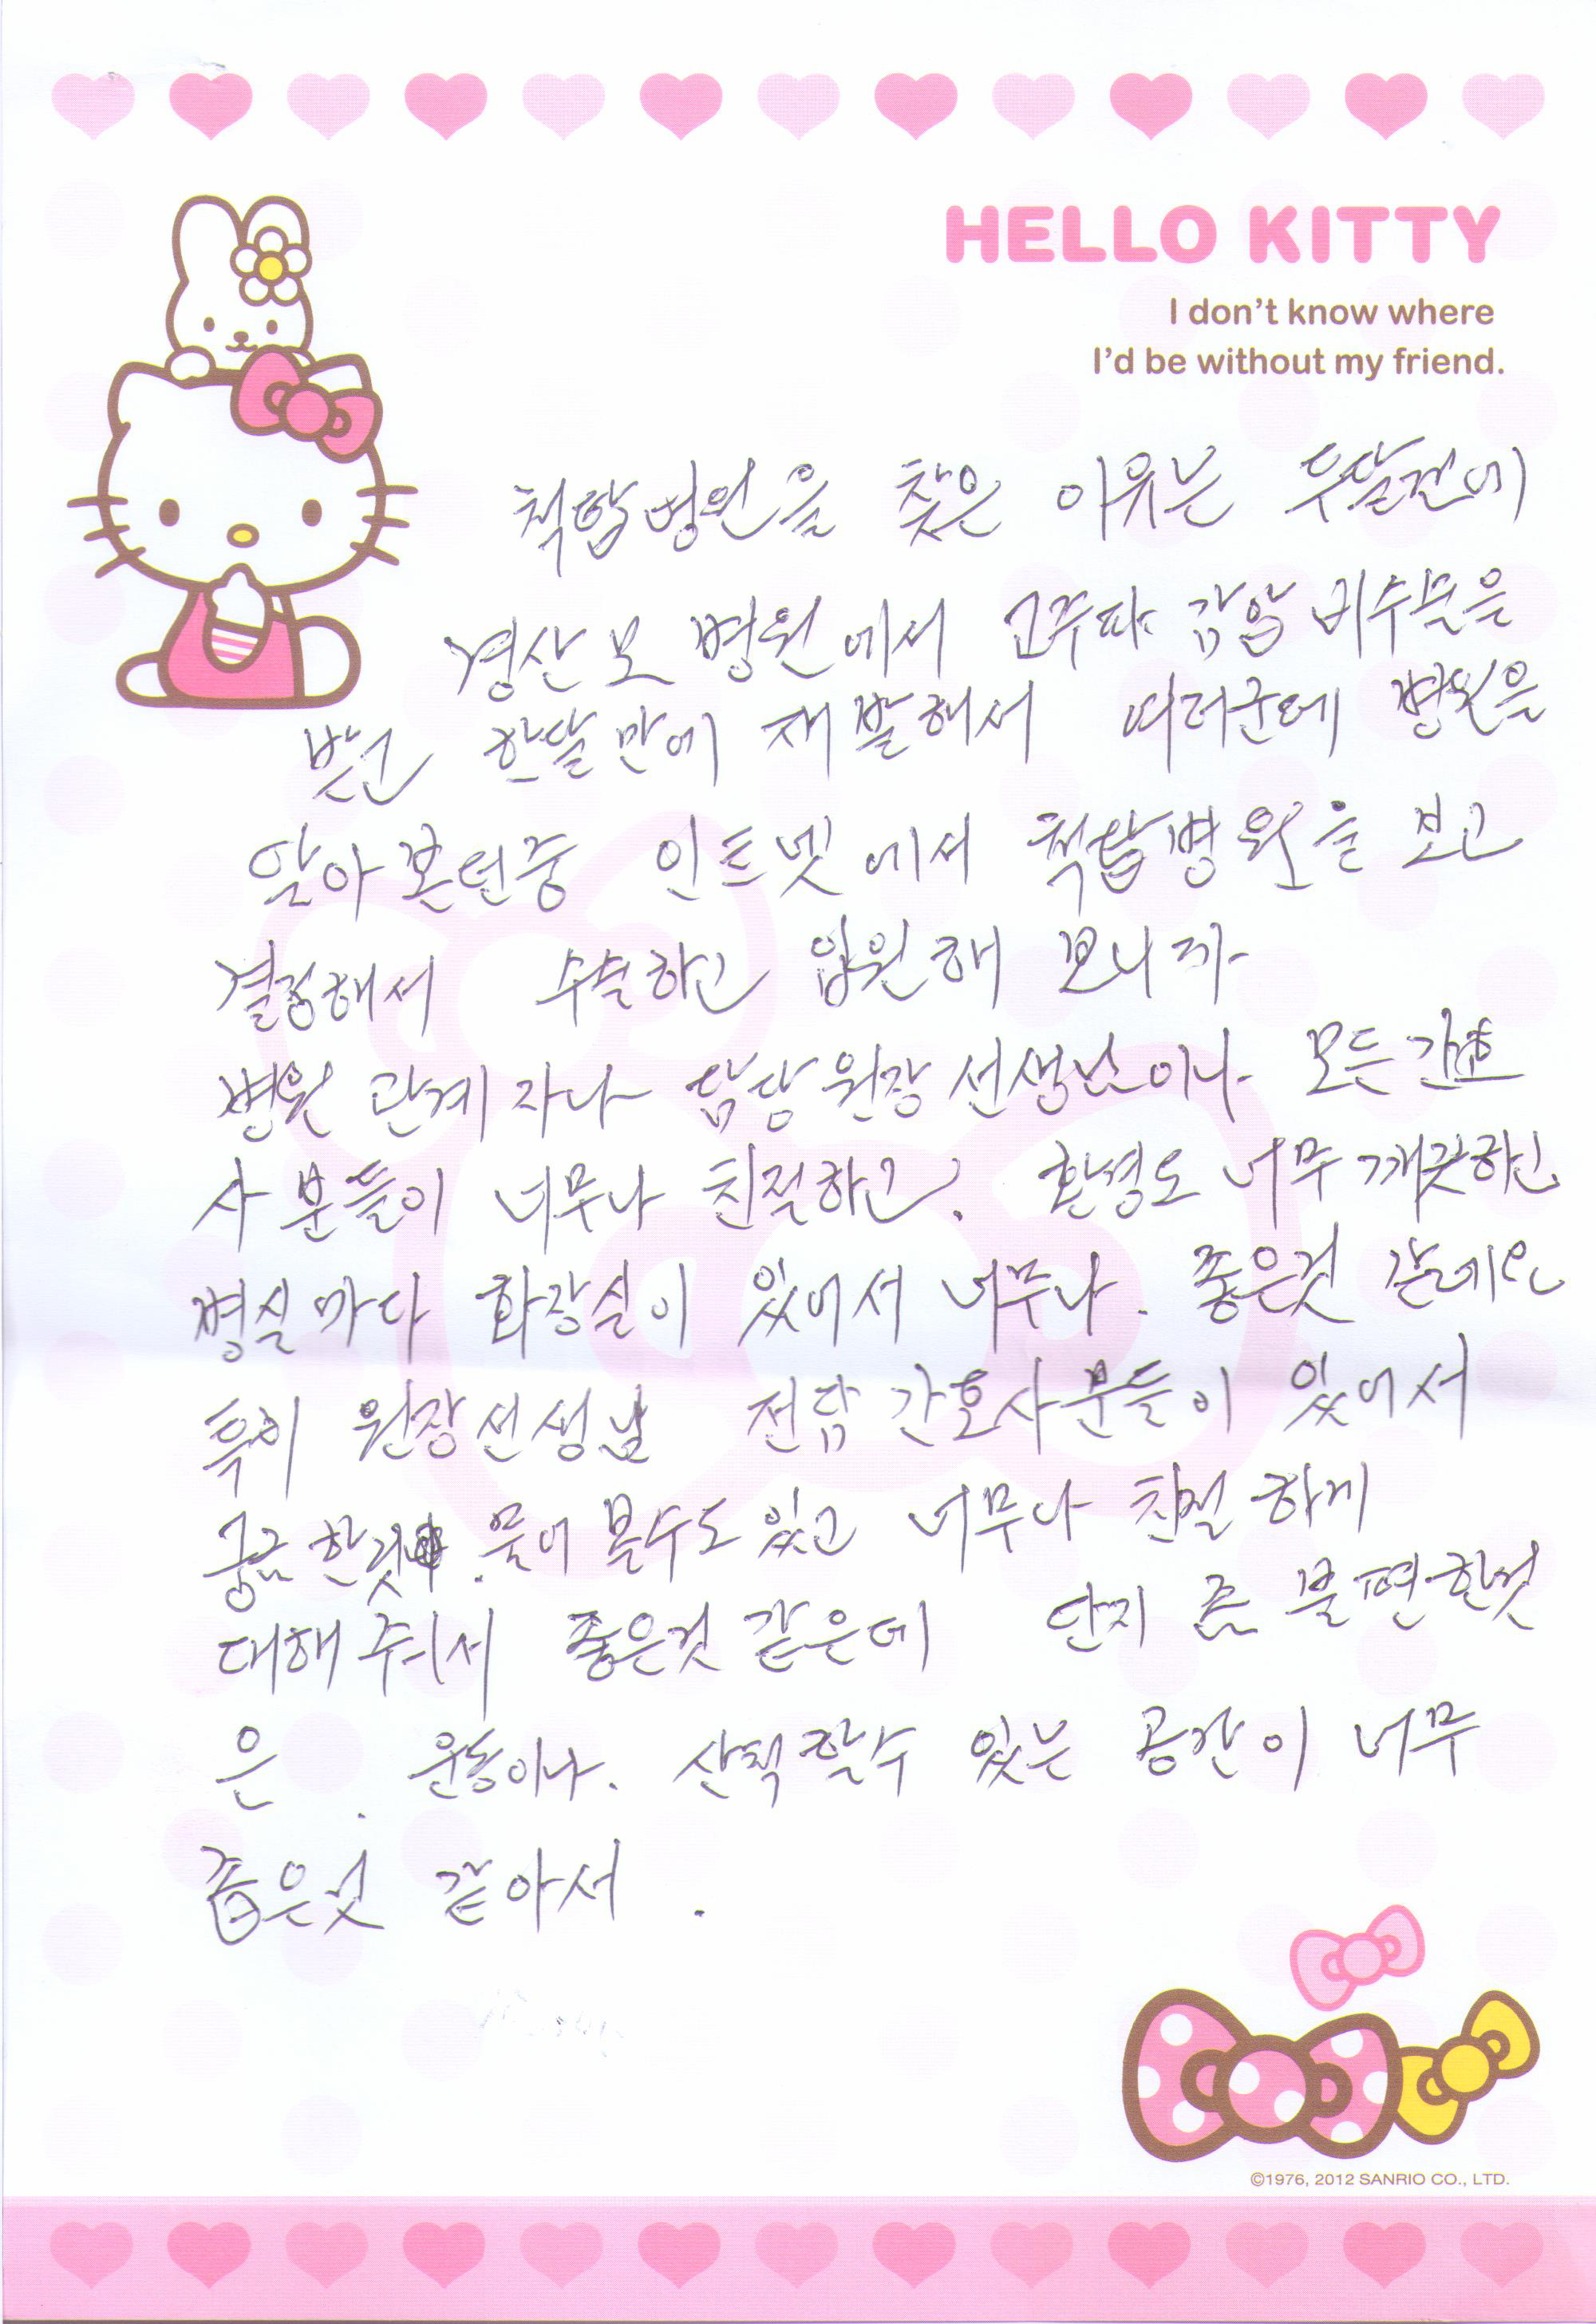 HELLO KITTY
I don't know where
I'd be without my friend.
척탑병원을 찾은 이유는 두달전에
경산모 병원에서 고주파 감압 비수술을
받고 한달만에 재발해서 여러군데 병원을
알아본던중 인트넷에서 척탑병원을 보고
결정해서 수술하고 입원해 보니까
병원 관계자나 담당원장선생님이나 모든간호
사분들이 너무나 친절하고. 환경도 너무 깨끗하고
병실마다 화장실이 있어서 너무나. 좋은것 같네요
특히 원장선생님 전담 간호사분들이 있어서
궁금한것. 물어볼수도 있고 너무나 친절하게
대해줘서 좋은것 같은데 단지 좀 불편한것
은. 운동이나. 산책할수 있는 공간이 너무
좁은것 같아서.
©1976, 2012 SANRIO CO., LTD.